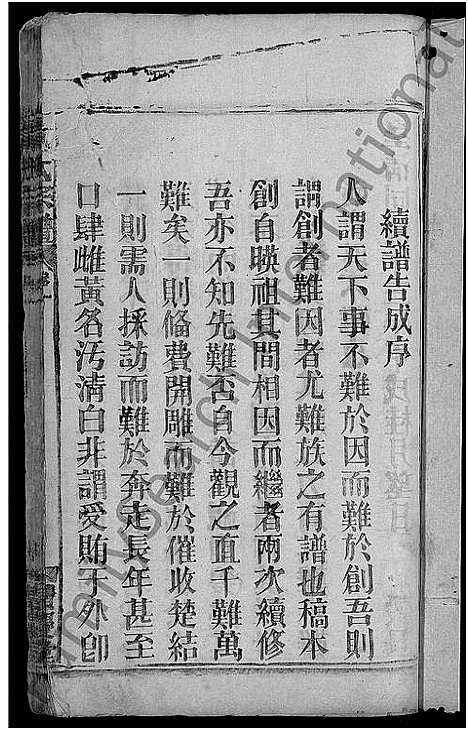 續譜告成序
人謂天下事不難於因而難於創吾則
謂創者難因者尤難族之有譜也稿本
創自暎祖其間相因而繼者兩次續修
吾亦不知先難否自今觀之直千難萬
難矣一則偹費開雕而難於催收楚結
一則需人採訪而難於奔走長年甚至
口肆雌黃名汚淸白非謂受賄于外卽